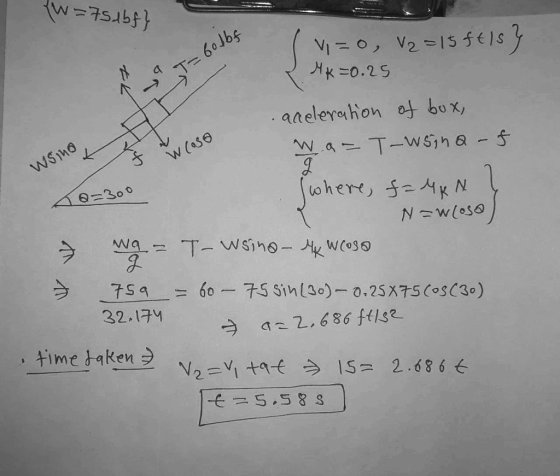 {W=75lbf}
{ V1=0, V2=15 ft/s }
μK=0.25
N
a
T=60lbf
Wsinθ
f
Wcosθ
θ=30°
. acceleration of box,
W/g a = T-Wsinθ-f
{where, f=μK N
N=Wcosθ}
⇒ Wa/g = T-Wsinθ-μK Wcosθ
⇒ 75a/32.174 = 60-75sin(30)-0.25×75cos(30)
⇒ a=2.686 ft/s2
. time taken ⇒ V2=V1+at ⇒ 15= 2.686 t
t=5.58s